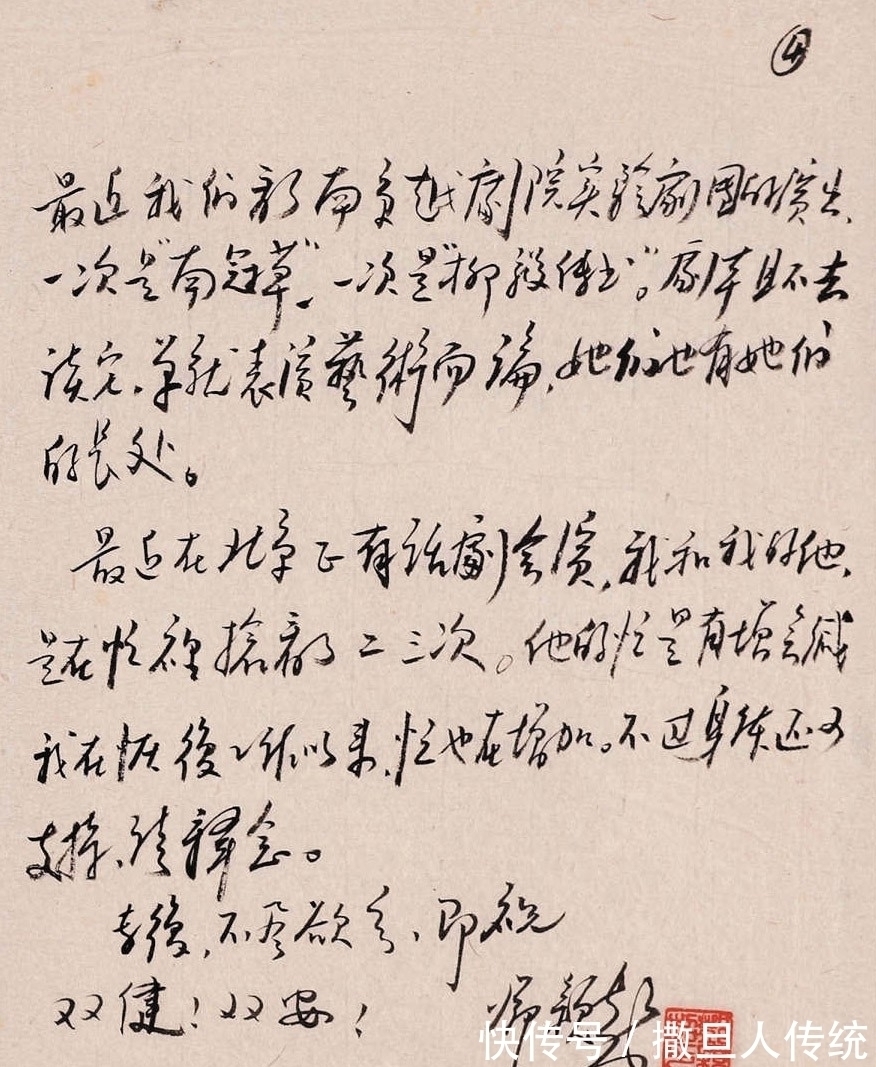 ④
最近我们看了南京越劇院实驗劇團的演出、
一次是“南冠草”、一次是“柳毅傳书”。劇本且不去
談它、单就表演藝術而論，她们也有她们
的長处。
最近在北京正有话劇会演，我和我的他、
是在忙裡搶看了二三次。他的忙是有增無减
我在恢復工作以来，忙也在增加。不过身体还可
支持、请釋念。
专復，不尽欲言、即祝
双健！双安！
快传号 / 撒旦人传统